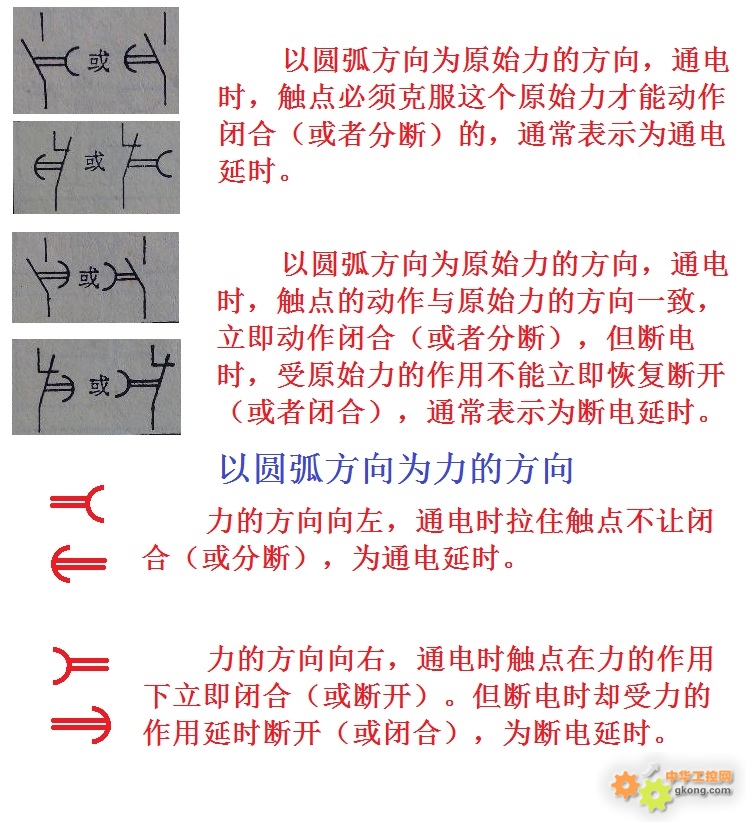 或
以圆弧方向为原始力的方向，通电
时，触点必须克服这个原始力才能动作
闭合（或者分断）的，通常表示为通电
延时。
或
或
以圆弧方向为原始力的方向，通电
时，触点的动作与原始力的方向一致，
立即动作闭合（或者分断），但断电
时，受原始力的作用不能立即恢复断开
（或者闭合），通常表示为断电延时。
或
以圆弧方向为力的方向
力的方向向左，通电时拉住触点不让闭
合（或分断），为通电延时。
力的方向向右，通电时触点在力的作用
下立即闭合（或断开）。但断电时却受力的
作用延时断开（或闭合），为断电延时。
中华工控网
gkong.com